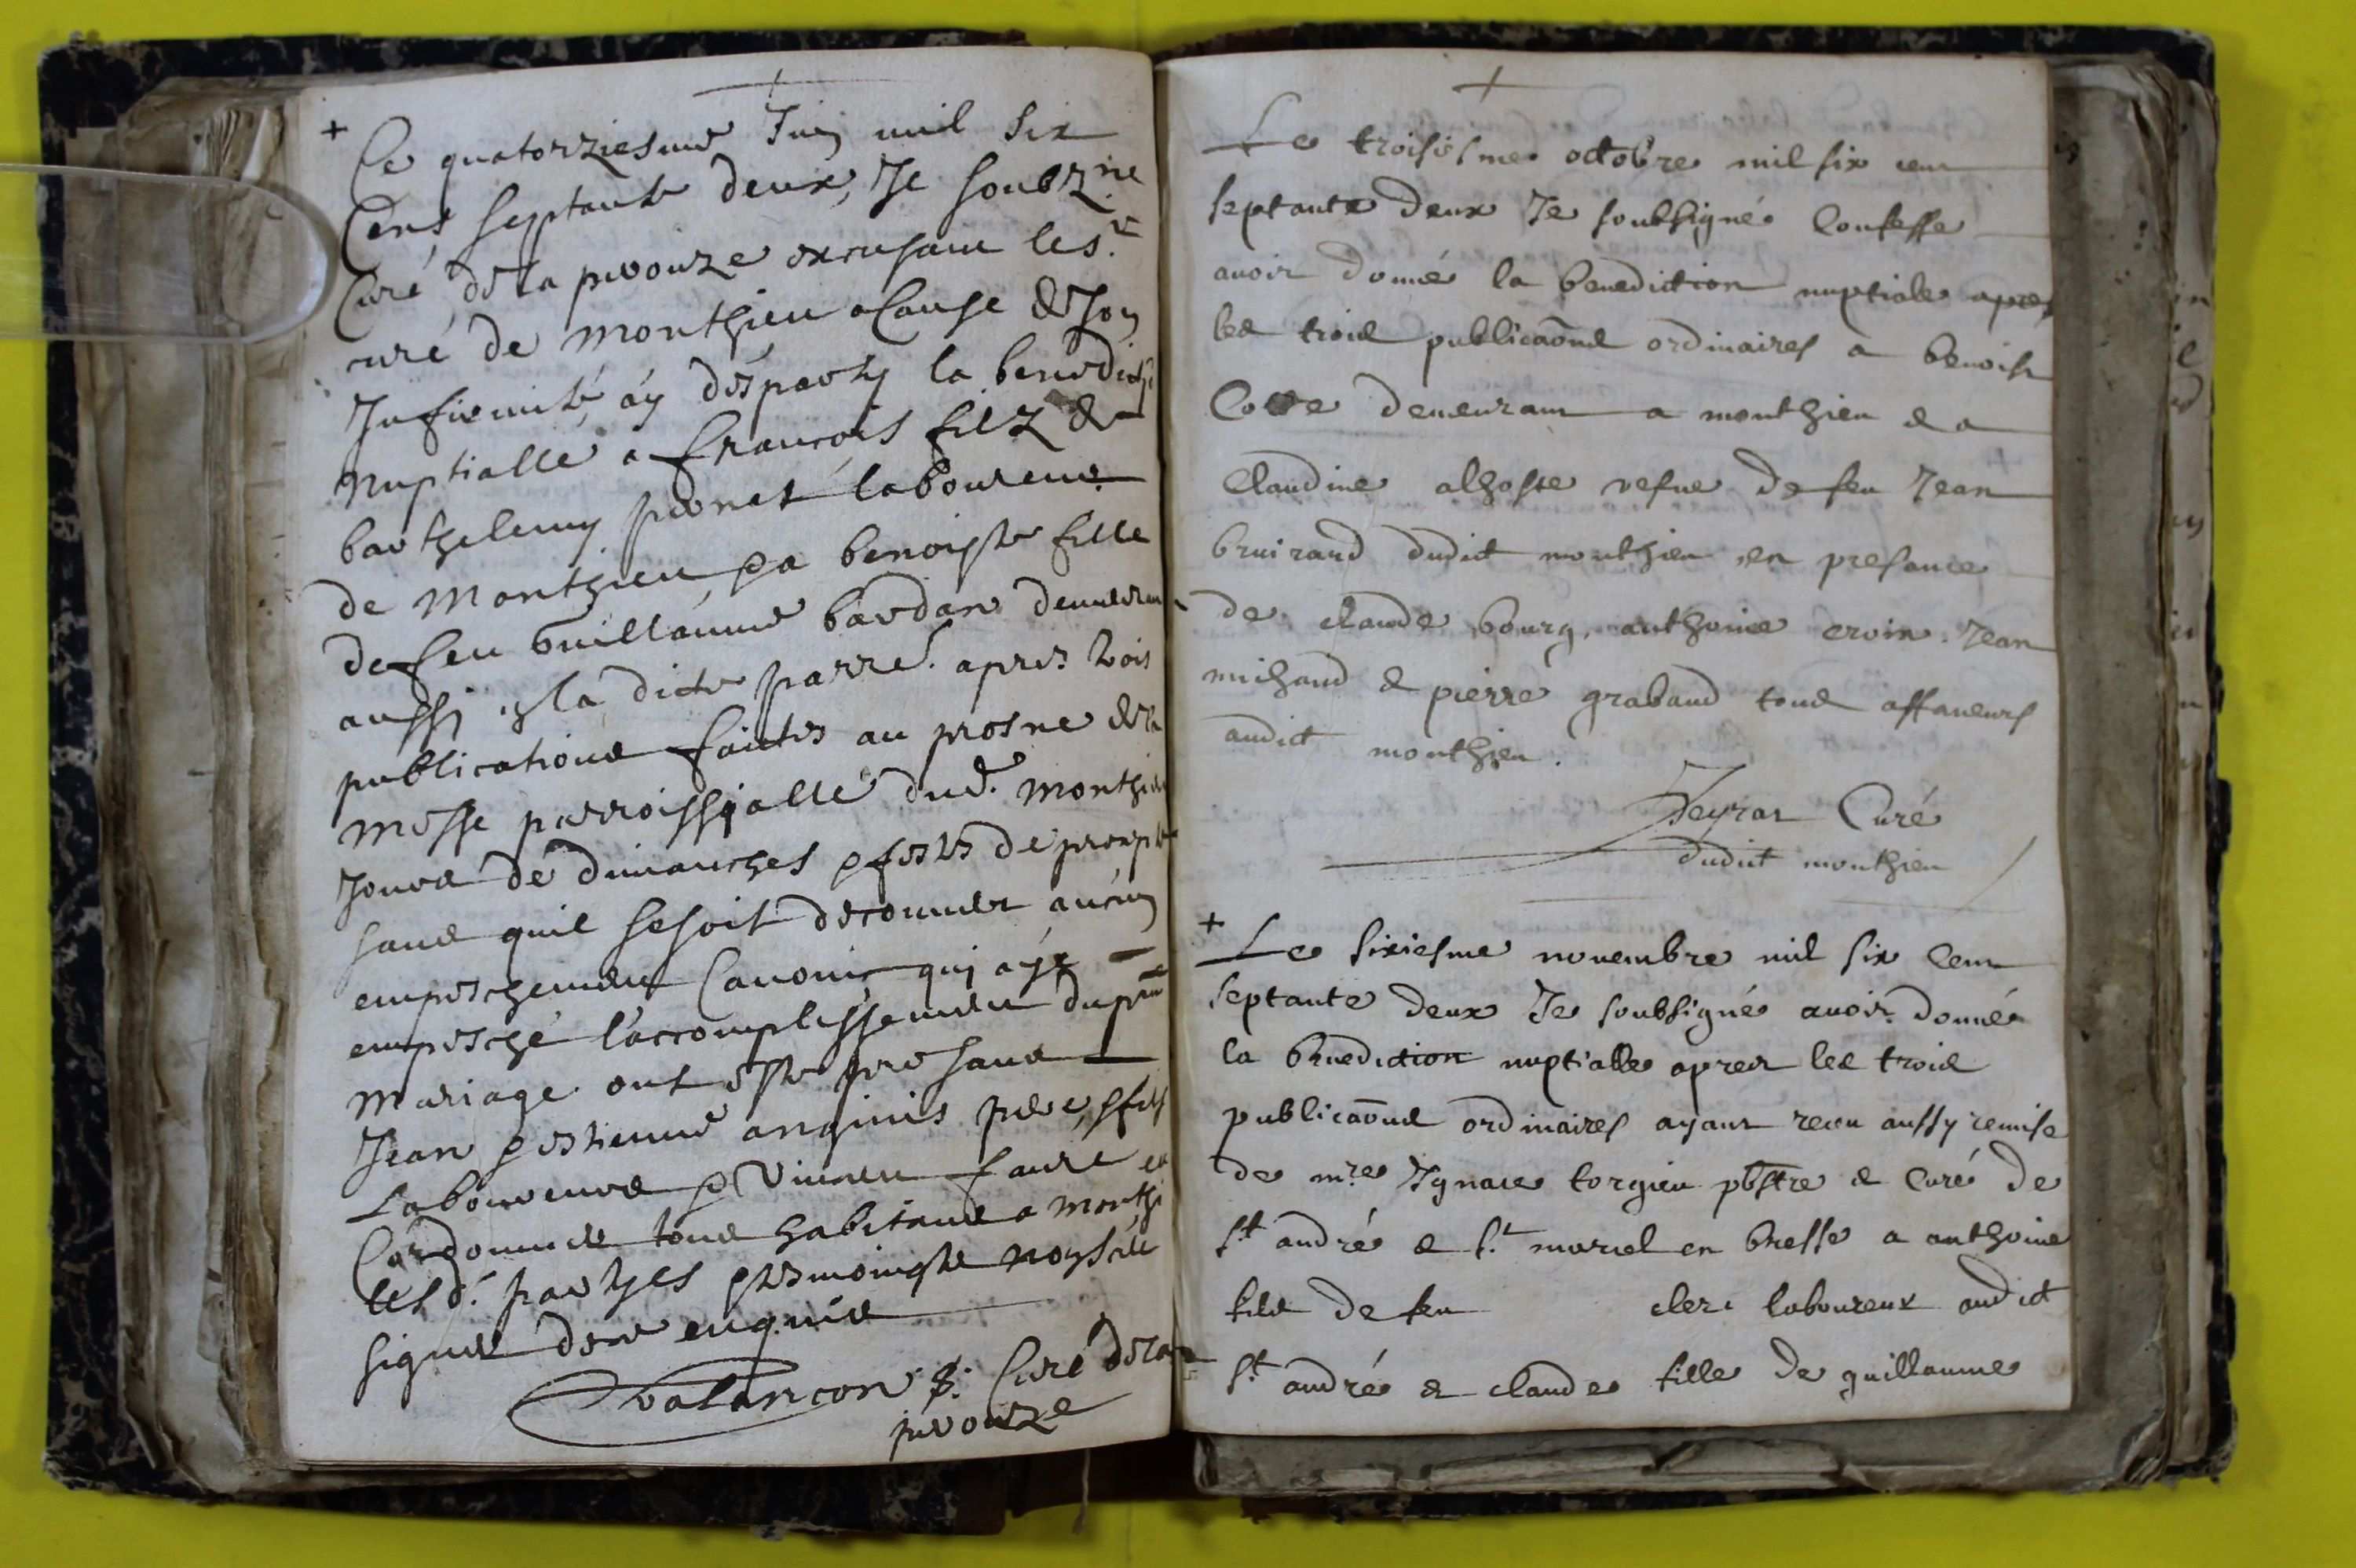 + Ce quatorziesme Juin mil six
Cens septante deux, Je soubzne
Curé de la peyrouze excusant le sr
curé de monthieu a Cause de son
Infirmité, ay desparty la benedicti
Nuptialle a francois filz de
barthelemy perret laboureur
de Monthieu, & a benoiste fille
de feu Guillaume bardan demeuran
aussi  la dicte parre. apres trois
publications faictes au prosne de la
Messe parroissialle dud. monthieu
Jours de dimanches & festes de precepte
sans quil se soit decouvert aucun
empeschement Canonic qui aye
empesché laccomplissement du pnt
Mariage ont este presans
Jean & estienne anginis pere & filz
Laboureurs & Vincen faure
Cordonnier tous habitans a Monthi
les d. partyes & tesmoingtz
signer de ce enquis
valancon p. Curé de la
perouze
Le troisiesme octobre mil six cent
septante deux Je soubsigné Confesse
avoir donné la benediction nuptiale apres
les trois publicaõns ordinaires a benoist
Cotte demeurant a monthieu & a
Claudine alhoste vefue de feu Jean
bruirand dudict monthieu en presance
de claude bourg, anthoine croin Jean
michaud & pierre graband tous affaneurs
audict monthieu.
Teyrar Curé
dudict monthieu
+ Le sixiesme novembre mil six Cent
septante deux Je soubsigné avoir donné
la benediction nuptialle apres les trois
publicaõns ordinaires ayant receu aussy remise
de mre Ignace torgieu pbstre & Curé de
st andré & st marcel en bresse a anthoine
fils de feu clerc laboureur audict
st andré & claude fille de guillaume